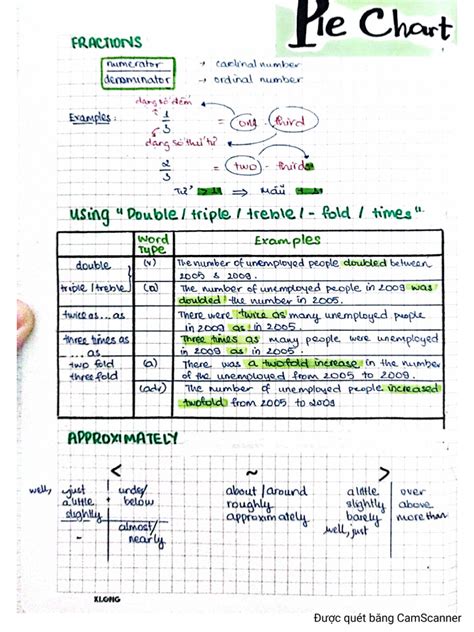 Pie Chart
FRACTIONS
numerator → cardinal number
denominator → ordinal number
dạng số đếm
Examples: 1/3 = one - third
dạng số thứ tự
2/3 = two - thirds
Tử > 1 ⇒ Mẫu + s
Using "Double / triple / treble / - fold / times"
Word Type Examples
double (v) The number of unemployed people doubled between
2005 & 2009.
triple / treble (a) The number of unemployed people in 2009 was
doubled the number in 2005.
twice as ... as There were twice as many unemployed people
in 2009 as in 2005.
three times as Three times as many people were unemployed
... as in 2009 as in 2005.
two fold (a) There was a twofold increase in the number
three fold of the unemployed from 2005 to 2009.
(adv) The number of unemployed people increased
twofold from 2005 to 2009
APPROXIMATELY
< ~ >
well, just under/ about / around a little over
a little below roughly slightly above
slightly approximately barely more than
- almost/ well, just
nearly
KLONG
Được quét bằng CamScanner